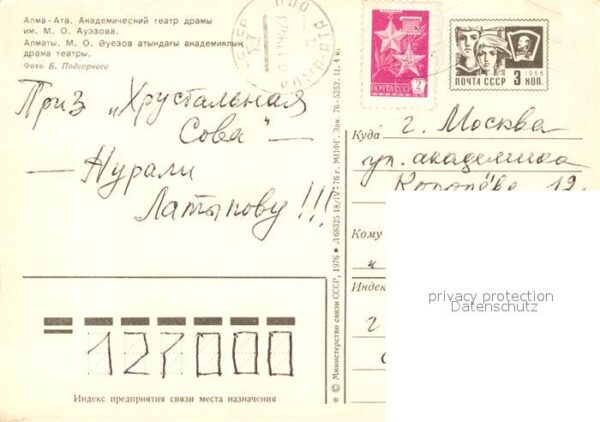 Алма-Ата. Академический театр драмы
им. М. О. Ауэзова.
Алматы. М. О. Әуезов атындағы академиялық
драма театры.
Фото Б. Подгорного
Приз „Хрустальная
Сова" —
— Нурали
Латыпову!!!
ПОЧТА СССР 2
ПОЧТА СССР 3 КОП.
1966
Куда г. Москва
ул. академика
Королёва 12
Кому
Индекс
г
127000
Индекс предприятия связи места назначения
* © Министерство связи СССР, 1976 * Л 68325 18/IV-76 г. МПФГ. Зак. 76-5252. Ц. 4 к.
privacy protection
Datenschutz